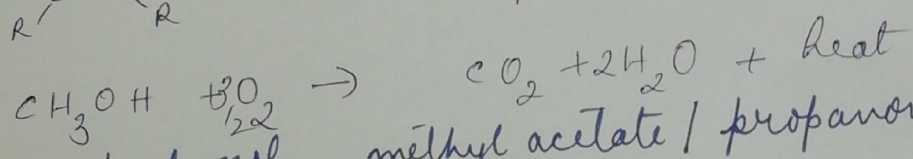 R R
CH₃OH + 3/2 O₂ → CO₂ + 2H₂O + heat
methyl acetate /